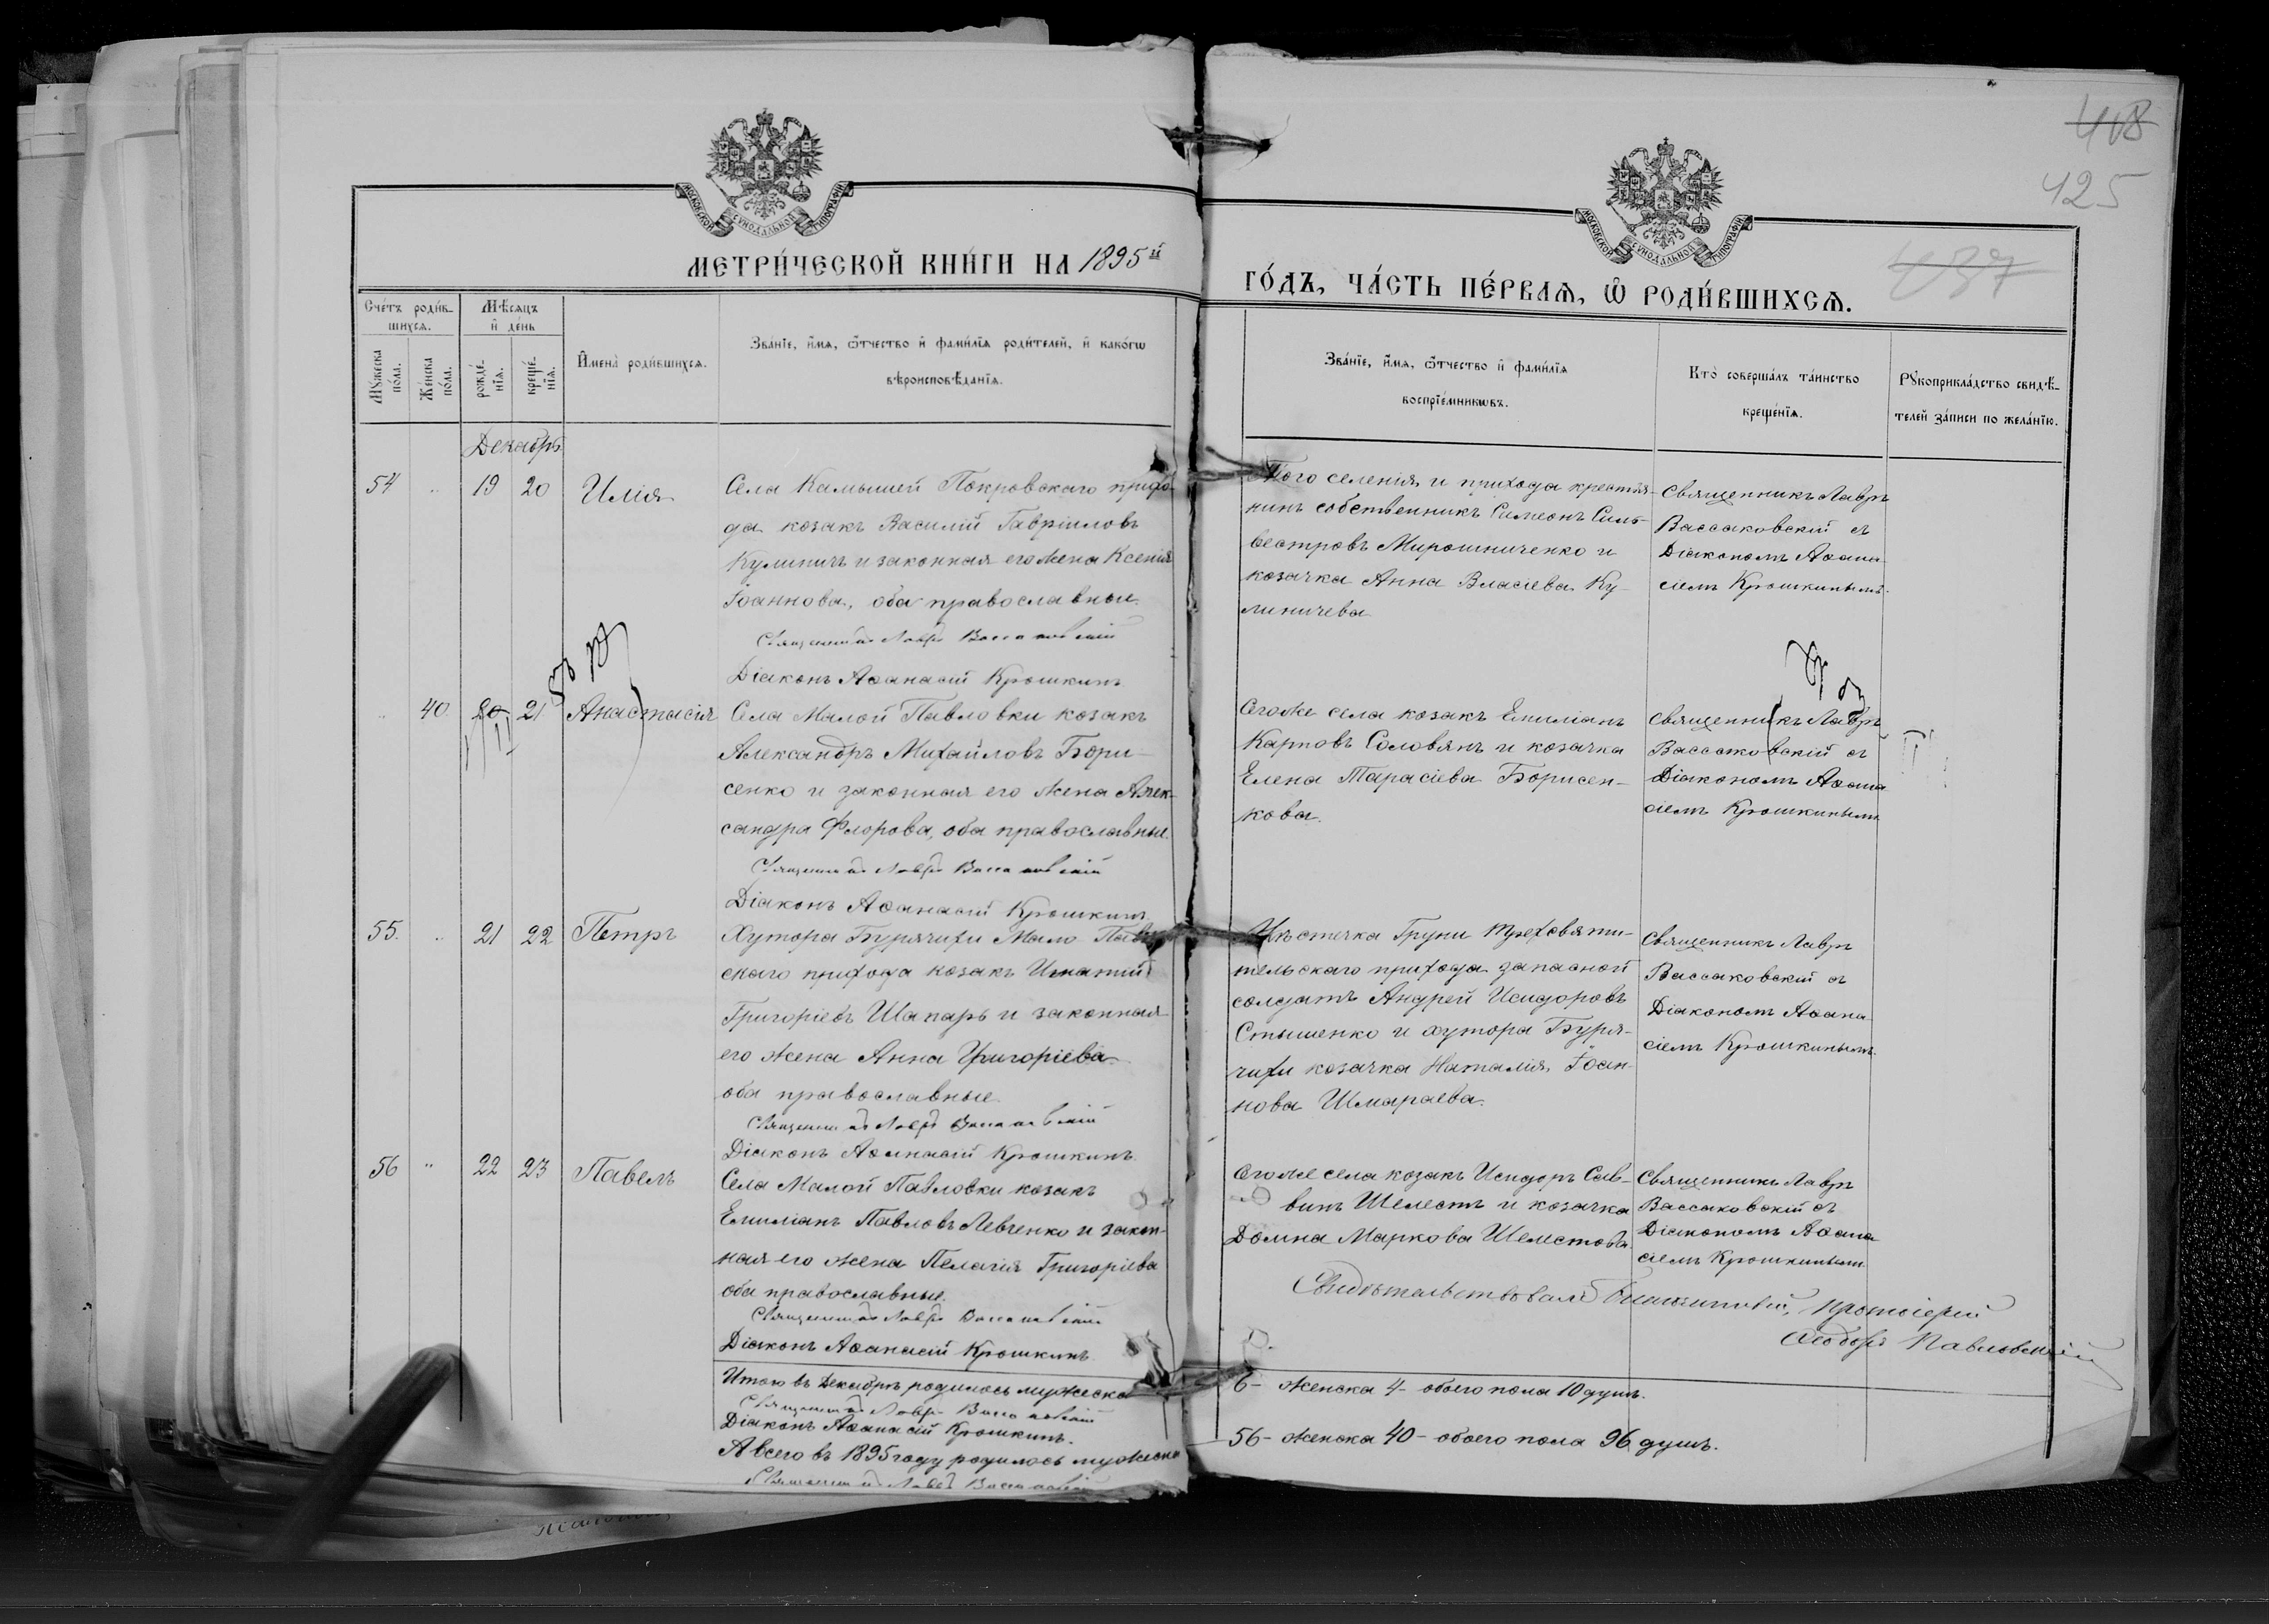 408
425
437
МОСКОВСКОЙ СѴНОДАЛЬНОЙ ТИПОГРАФІИ
МОСКОВСКОЙ СѴНОДАЛЬНОЙ ТИПОГРАФІИ
МЕТРИ́ЧЕСКОЙ КНИ́ГИ НА 1895й
ГО́ДЪ, ЧА́СТЬ ПЕ́РВАѦ, Ѡ РОДИ́ВШИХСѦ.
Сче́тъ роди́в-
шихсѧ.
Мѣ́сѧцъ
и҆ де́нь
Мꙋ́жеска
по́ла.
Же́нска
по́ла.
рожде́-
нїѧ.
креще́-
нїѧ.
И҆мена̀ роди́вшихсѧ.
Зва́нїе, и҆́мѧ, ѻ҆́тчество и҆ фами́лїѧ роди́телей, и҆ како́гѡ
вѣроисповѣ́данїѧ.
Зва́нїе, и҆́мѧ, ѻ҆́тчество и҆ фами́лїѧ
воспрїе́мникѡвъ.
Кто̀ соверша́лъ та́инство
креще́нїѧ.
Рꙋкоприкла́дство свидѣ́-
телей за́писи по жела́нїю.
Декабрь
54 " 19 20 Илія
Села Камышей Покровскаго прихо-
да козакъ Василій Гавріиловъ
Кулиничъ и законная его жена Ксенія
Іоаннова, оба православные.
Священникъ Лавръ Вассаковскій
Діаконъ Аѳанасій Крошкинъ
Того селенія и прихода крестья-
нинъ собственникъ Симеонъ Силь-
вестровъ Мирошниченко и
козачка Анна Власіева Ку-
линичева
Священникъ Лавръ
Вассаковскій съ
Діакономъ Аѳана-
сіемъ Крошкинымъ.
" 40 20 21 Анастасія
Села Малой Павловки козакъ
Александръ Михайловъ Бори-
сенко и законная его жена Алек-
сандра Флорова, оба православные.
Священникъ Лавръ Вассаковскій
Діаконъ Аѳанасій Крошкинъ
Сегоже села козакъ Емиліанъ
Карповъ Соловянъ и козачка
Елена Тарасіева Борисен-
кова.
Священникъ Лавръ
Вассаковскій съ
Діакономъ Аѳана-
сіемъ Крошкинымъ
55. " 21 22 Петръ
Хутора Бурячихи Мало-Павлов-
скаго прихода козакъ Игнатій
Григоріевъ Шапарь и законная
его жена Анна Григоріева
оба православные.
Священникъ Лавръ Вассаковскій
Діаконъ Аѳанасій Крошкинъ
Мѣстечка Груни Трехсвяти-
тельскаго прихода запасной
солдатъ Андрей Исидоровъ
Стышенко и хутора Буря-
чихи козачка Наталія Іоан-
нова Шмараева.
Священникъ Лавръ
Вассаковскій съ
Діакономъ Аѳана-
сіемъ Крошкинымъ.
56 " 22 23 Павелъ
Села Малой Павловки козакъ
Емиліанъ Павловъ Левченко и закон-
ная его жена Пелагія Григоріева
оба православные.
Священникъ Лавръ Вассаковскій
Діаконъ Аѳанасій Крошкинъ
Сегоже села козакъ Исидоръ Сав-
винъ Шелестъ и козачка
Домна Маркова Шелестова
Священникъ Лавръ
Вассаковскій съ
Діакономъ Аѳана-
сіемъ Крошкинымъ
Свидѣтельствовалъ Благочинный, Протоіерей
Ѳеодоръ Павловскій
Итого въ Декабрѣ родилось мужеска 6 - женска 4 - обоего пола 10 душъ.
Священникъ Лавръ Вассаковскій
Діаконъ Аѳанасій Крошкинъ.
А всего въ 1895 году родилось мужеска 56 - женска 40 - обоего пола 96 душъ.
Священникъ Лавръ Вассаковскій